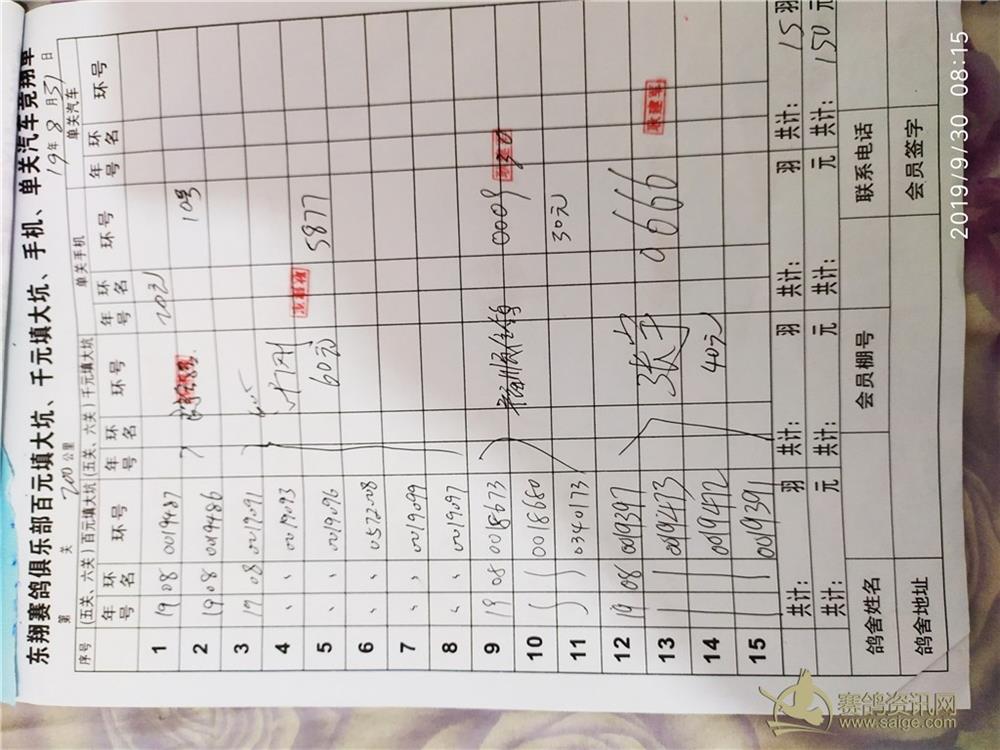 东翔赛鸽俱乐部百元填大坑、千元填大坑、手机、单关汽车竞翔单
第 关 200公里 19年8月31日
序号 (五关、六关)百元填大坑 (五关、六关)千元填大坑 单关手机 单关汽车
年号 环名 环号 年号 环名 环号 年号 环名 环号 年号 环名 环号
1 19 08 0019487 2021
2 19 08 0019486 10号
3 19 08 0019091
4 、 、 0019093
5 、 、 0019096 60元 5877
6 、 、 0572008
7 、 、 0019099
8 、 、 0019097
9 19 08 0018673 0009
10 0018680
11 0340173 30元
12 19 08 0019397
13 0019473 张宇 0666 耿建军
14 0019472 40元
15 0019391
共计: 羽 共计: 羽 共计: 羽 共计: 15羽
共计: 元 共计: 元 共计: 元 共计: 150元
鸽舍姓名 会员棚号 联系电话
鸽舍地址 会员签字
2019/9/30 08:15
赛鸽资讯网
www.saige.com